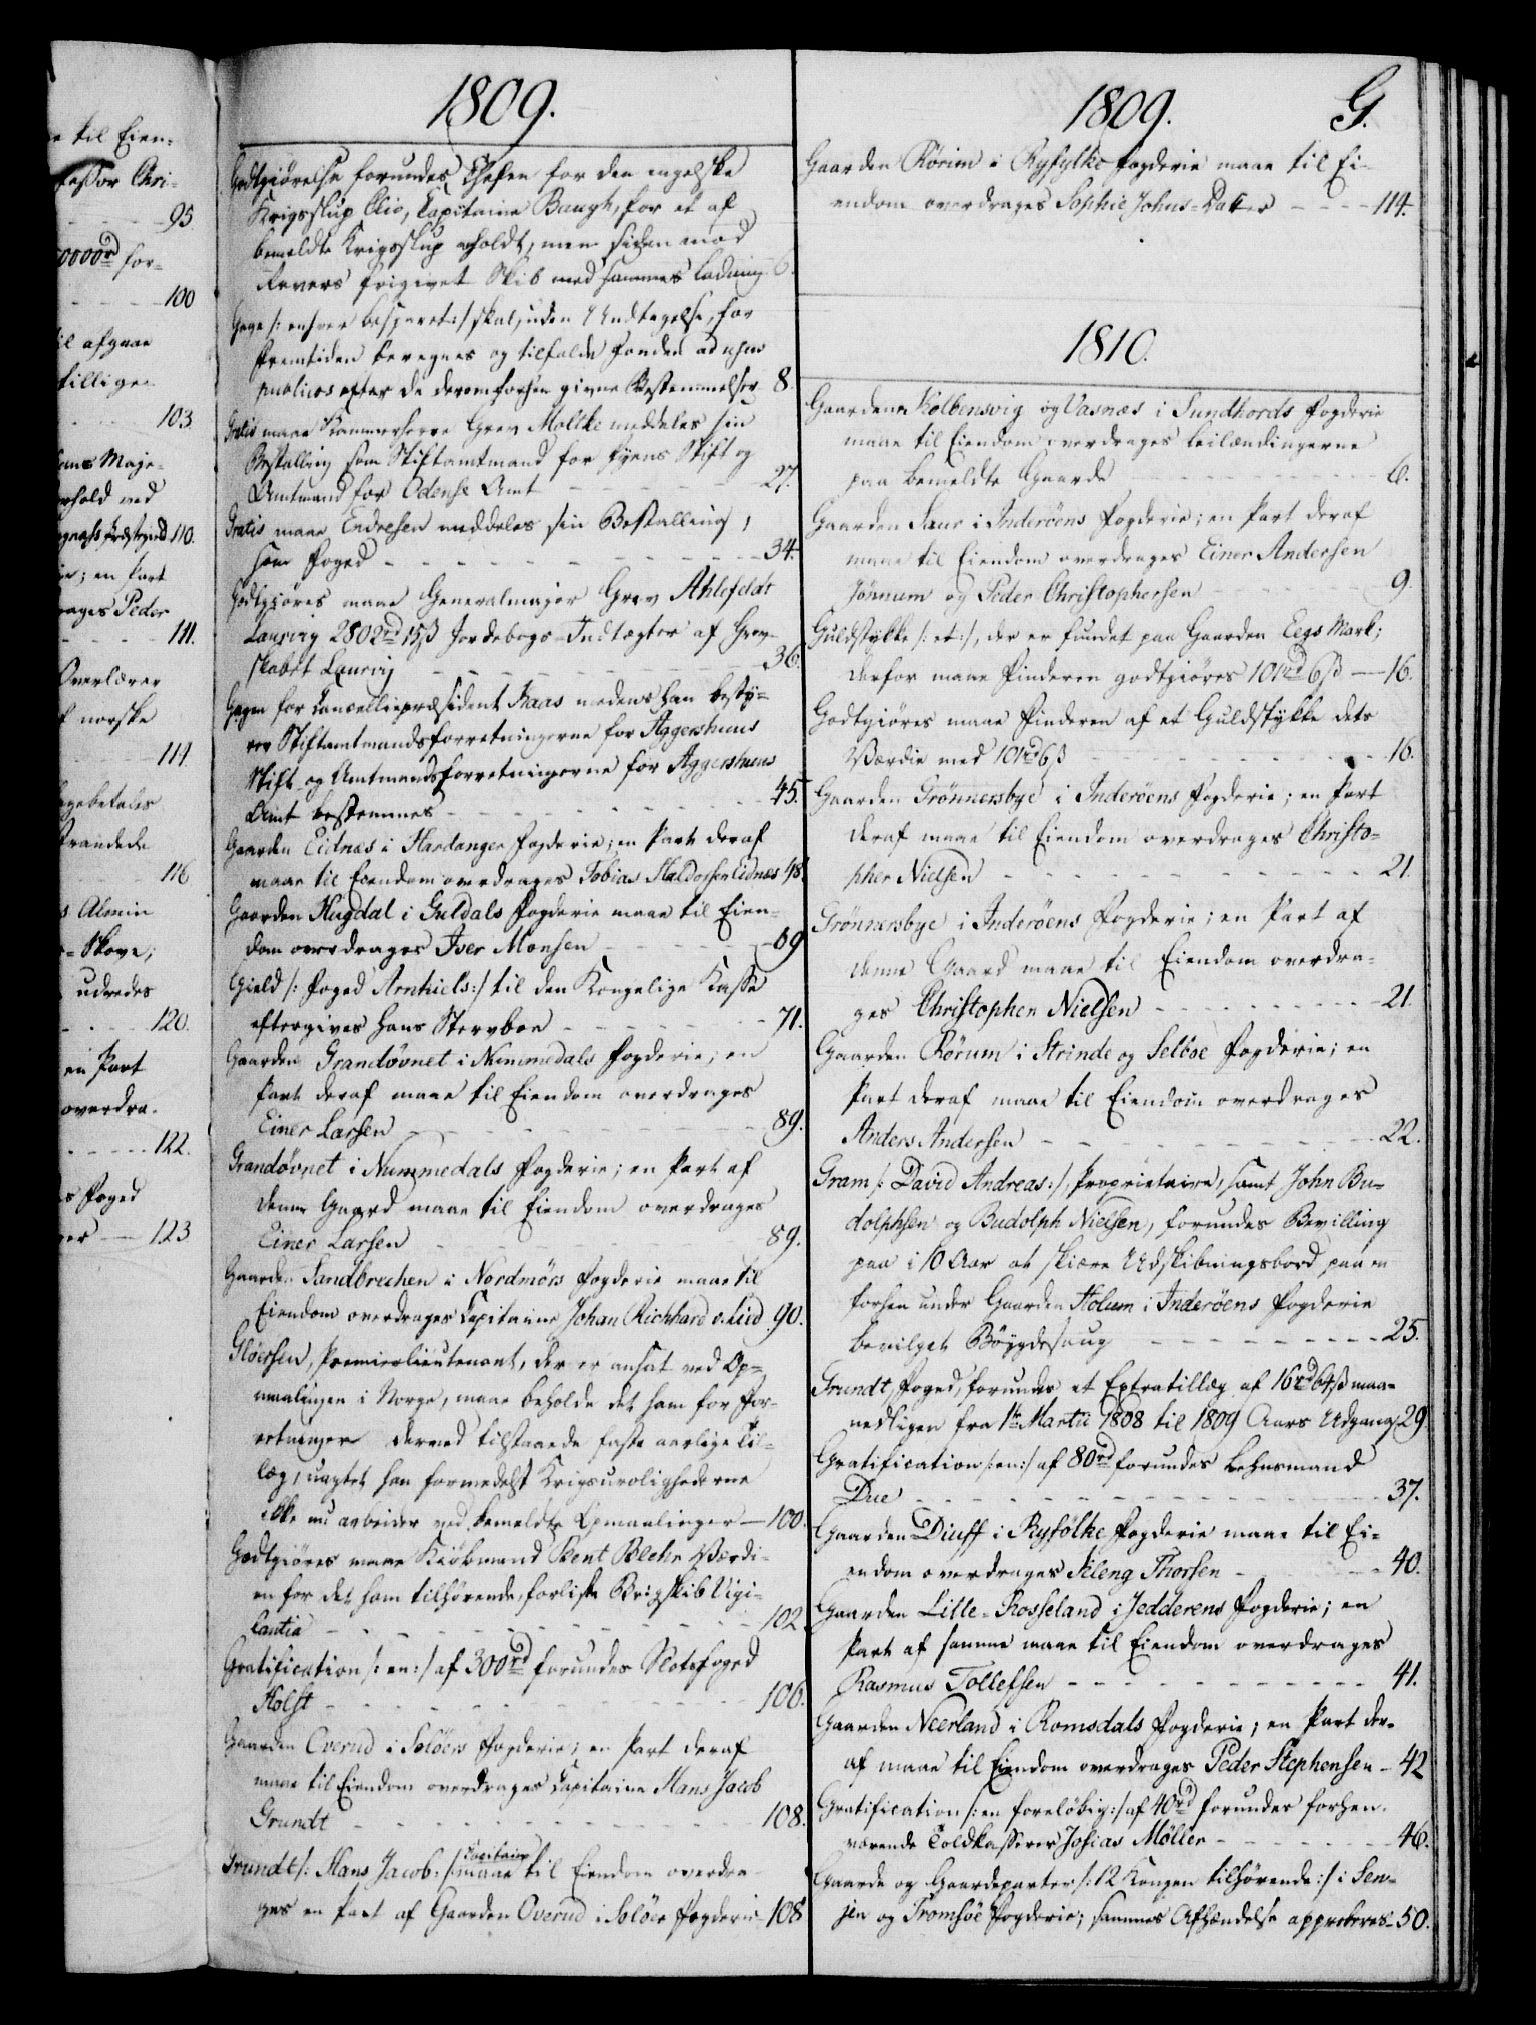 e til Eien-
fessor Chri-
95.
0000rd for-
100
til afgaae
tillige
103.
Hans Maje-
erhold ved
110.
ie; en Part
rages Peder
111.
Overlærer
f norske
114
agebetales
strandede
116
s Almin
Skove;
udredes
120.
en Part
overdra-
122.
s Foged
ger — 123
1809.
Godtgiörelse forundes Chefen for den engelske
Krigsslup Clio, Capitaine Baugh, for et af
bemeldte Krigsslup opholdt, men siden mod
Revers frigivet Skib med sammes Ladning 6.
Gage /: enhver besparet :/ skal, uden Undtagelse, for
Fremtiden beregnes og tilfalde Fonden ad usus
publicos efter de derom forhen givne Bestemmelser 8.
Gratis maae Kammerherre Grev Moltke meddeles sin
Bestalling som Stiftamtmand for Fyens Stift og
Amtmand for Odense Amt 27.
Gratis maae Endresen meddeles sin Bestalling,
som Foged 34.
Godtgiöres maae Generalmajor Grev Ahlefeldt
Laurvig 2802rd 15ß Jordebogs Indtægter af Grev-
skabet Laurvig 36.
Gagen for Cancelliepræsident Kaas medens han besty-
rer Stiftamtmandsforretningerne for Aggershuus
Stift og Amtmandsforretningerne for Aggershuus
Amt bestemmes 45.
Gaarden Eidnæs i Hardanger Fogderie; en Part deraf
maae til Eiendom overdrages Tobias Haldorsen Eidnæs 48.
Gaarden Hugdal i Guldals Fogderie maae til Eien-
dom overdrages Iver Monsen 69
Gield /: Foged Arnhiels :/ til den Kongelige Kasse
eftergives hans Stervboe 71.
Gaarden Grandövnet i Nummedals Fogderie; en
Part deraf maae til Eiendom overdrages
Einer Larsen 89.
Grandövnet i Nummedals Fogderie; en Part af
denne Gaard maae til Eiendom overdrages
Einer Larsen 89.
Gaarden Sandbrechen i Nordmörs Fogderie maae til
Eiendom overdrages Capitaine Johan Richhard v. Lied 90.
Glöersen, Premierlieutenant, der er ansat ved Op-
maalingen i Norge, maae beholde det ham for For-
retninger derved tilstaaede faste aarlige Til-
læg, uagtet han formedelst Krigsurolighederne
ikke nu arbeider ved bemeldte Opmaalinger — 100.
Godtgiöres maae Kiöbmand Bent Blehr Værdi-
en for det ham tilhörende, forliste Brigskib Vigi-
lantia 102
Gratification /: en :/ af 300rd forundes Slotsfoged
Holst 106.
Gaarden Overud i Solöers Fogderie; en Part deraf
maae til Eiendom overdrages Capitaine Hans Jacob
Grundt 108.
Grundt /: Hans Jacob :/ Capitaine maae til Eiendom overdra-
ges en Part af Gaarden Overud i Solöer Fogderie 108
1809. G.
Gaarden Rörim i Ryfylke Fogderie maae til Ei-
endom overdrages Sophie Johns-Datter 114.
1810.
Gaardene Kolbensvig og Vasnæs i Sundhords Fogderie
maae til Eiendom overdrages Leilændingerne
paa bemeldte Gaarde 6.
Gaarden Saur i Inderöens Fogderie; en Part deraf
maae til Eiendom overdrages Einer Andersen
Jönnum og Peder Christophersen 9.
Guldstykke /: et :/, der er fundet paa Gaarden Eegs Mark;
derfor maae Finderen godtgiöres 101rd 6ß — 16.
Godtgiöres maae Finderen af et Guldstykke dets
Værdie med 101rd 6ß 16.
Gaarden Grönnersbye i Inderöens Fogderie; en Part
deraf maae til Eiendom overdrages Christo-
pher Nielsen 21.
Grönnersbye i Inderöens Fogderie; en Part af
denne Gaard maae til Eiendom overdra-
ges Christopher Nielsen 21.
Gaarden Rörum i Strinde og Selboe Fogderie; en
Part deraf maae til Eiendom overdrages
Anders Andersen 22.
Gram /: David Andreas :/, Proprietaire, samt John Bu-
dolphsen og Budolph Nielsen, forundes Bevilling
paa i 10 Aar at skiære Udskibningsbord paa en
forhen under Gaarden Holum i Inderöens Fogderie
bevilget Böygdesaug 25.
Grundt, Foged, forundes et Extratillæg af 16rd 64ß maa-
nedligen fra 1te Martii 1808 til 1809 Aars Udgang 29
Gratification /: en :/ af 80rd forundes Lehnsmand
Due 37.
Gaarden Diuff i Ryfölke Fogderie maae til Ei-
endom overdrages Seleng Thorsen 40.
Gaarden Lille-Rosseland i Jedderens Fogderie; en
Part af samme maae til Eiendom overdrages
Rasmus Tollefsen 41.
Gaarden Neerland i Romsdals Fogderie; en Part der-
af maae til Eiendom overdrages Peder Stephensen — 42
Gratification /: en foreløbig :/ af 40rd forundes forhen-
værende Toldkasserer Josias Möller 46.
Gaarde og Gaardeparter /: 12 Kongen tilhörende :/ i Sen-
jen og Tromsöe Fogderie; sammes Afhændelse approberes — 50.